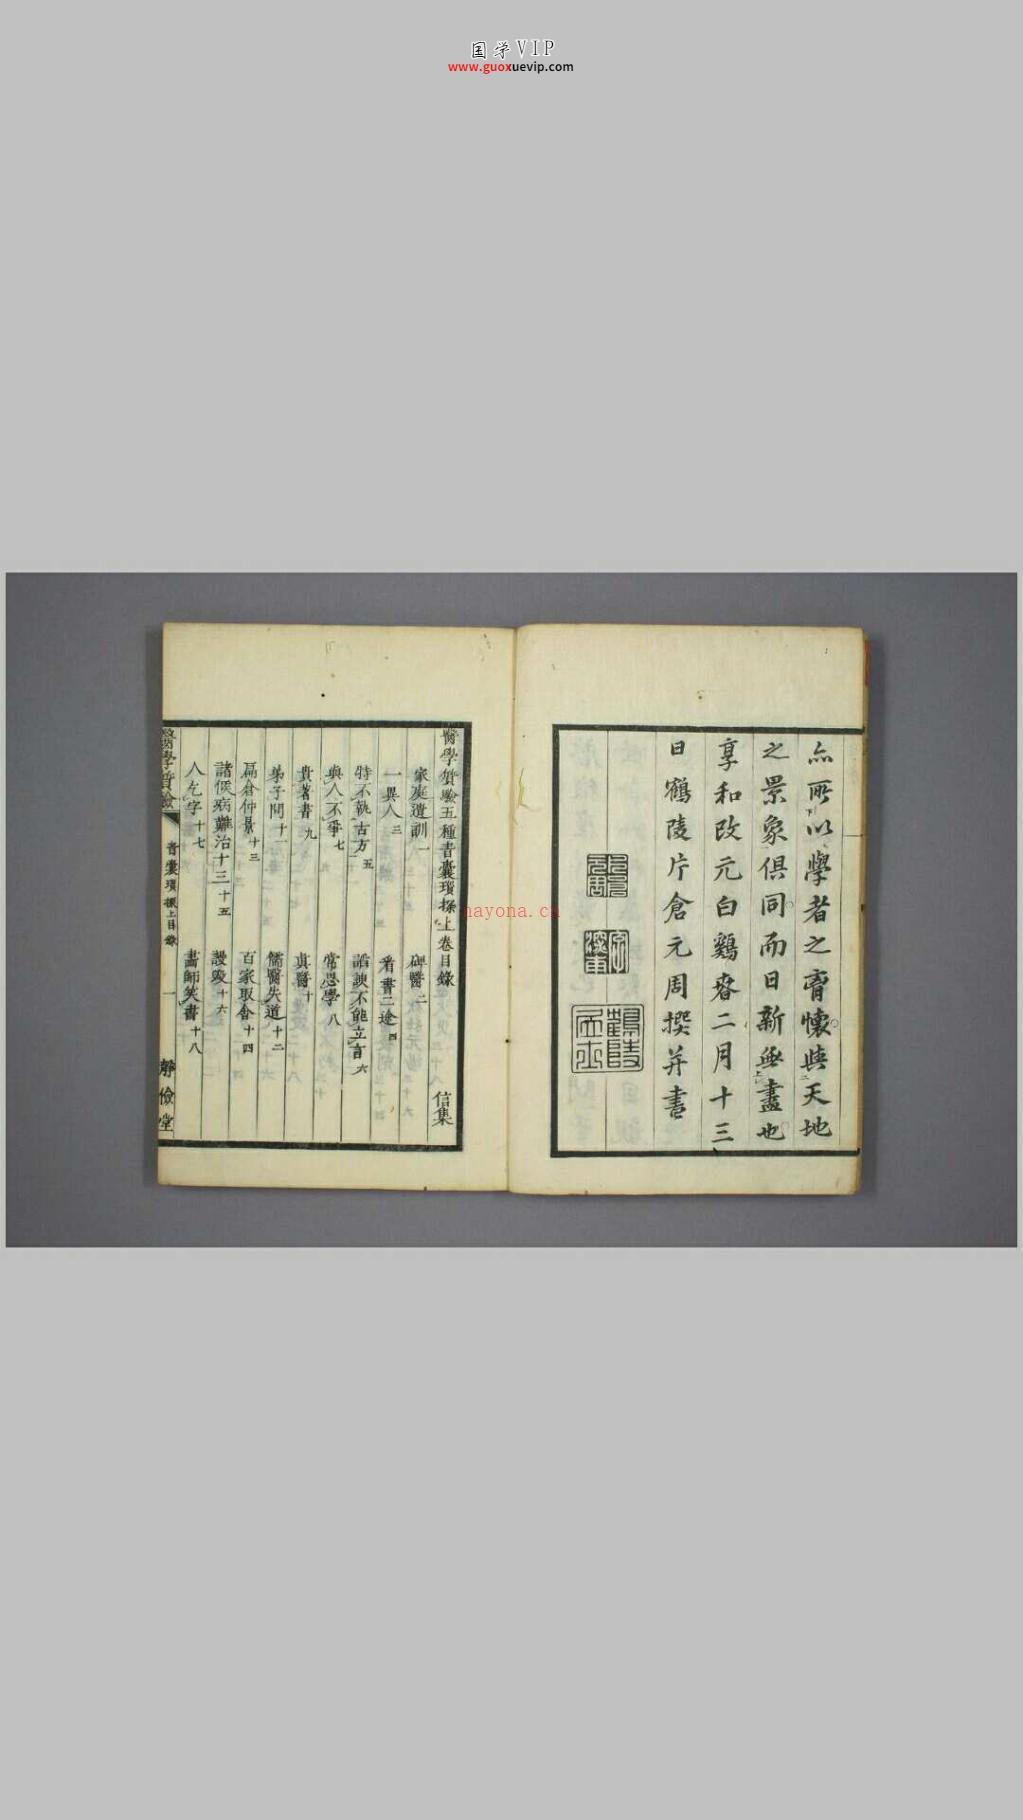 国学VIP
www.guoxuevip.com
亦所以學者之胷懷與天地
之景象俱同而日新無盡也
享和改元白鷄春二月十三
日鶴陵片倉元周撰并書
片倉元周
鶴陵
醫學質驗五種青囊瑣探上卷目錄 信集
家庭遺訓一 碑醫二
一異人三 看書二途四
特不執古方五 諂諛不能立言六
與人不爭七 常思學八
貴著書九 真醫十
弟子問十一 儒醫失道十二
扁倉仲景十三 百家取舍十四
諸侯病難治十三十五 謾毀十六
人乞字十七 畵師笑書十八
醫學質驗 青囊瑣探上目錄 一 靜儉堂
nayona.cn